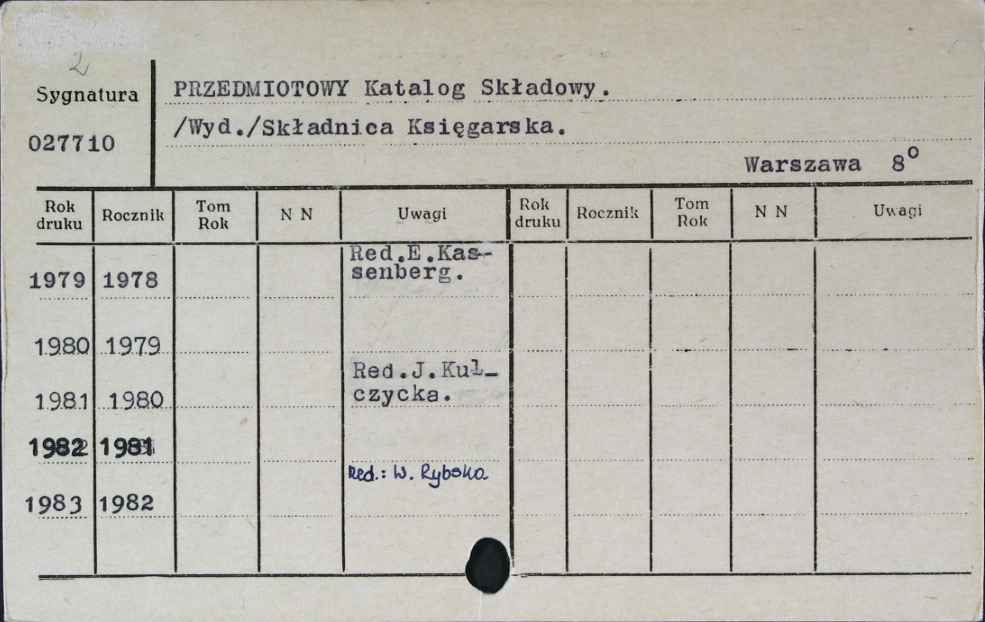 2
Sygnatura
027710
PRZEDMIOTOWY Katalog Składowy.
/Wyd./Składnica Księgarska.
Warszawa 8°
Rok druku Rocznik Tom Rok N N Uwagi Rok druku Rocznik Tom Rok N N Uwagi
1979 1978 Red.E.Kas-
senberg.
1980 1979
1981 1980 Red.J.Kul-
czycka.
1982 1981
1983 1982 Red.: W. Rybska